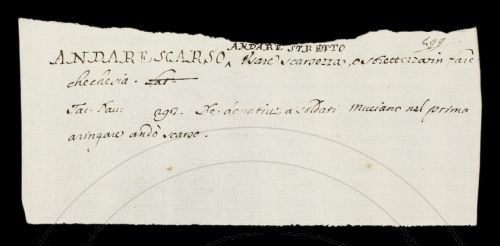 899
ANDARE STRETTO
ANDARE SCARSO, ^ Usare scarsezza, e strettezza in fare
chechesia.
Tac. Dav. 297. De donativi a soldati, Muciano nel primo
aringare andò scarso.